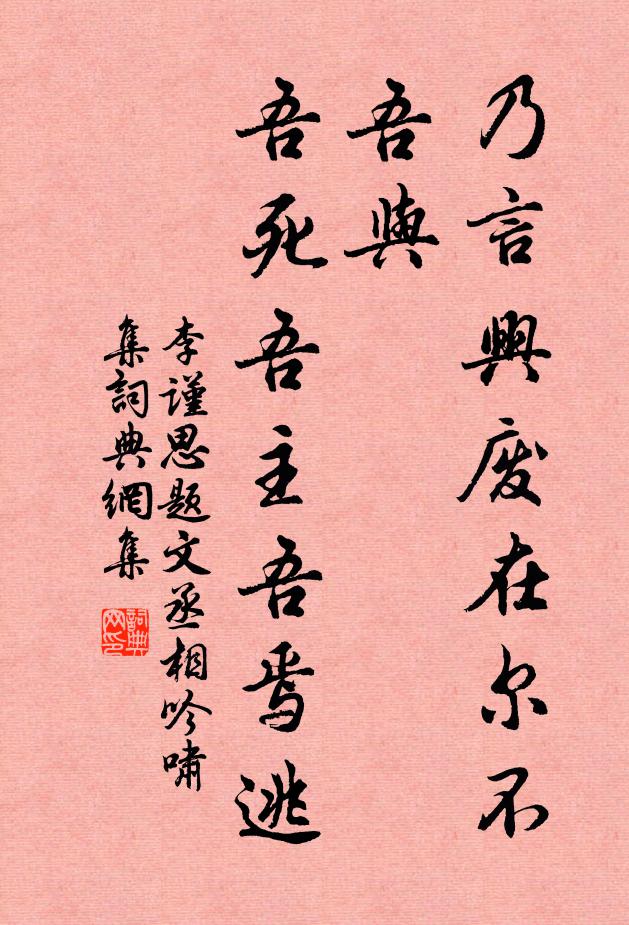 乃言興废在尔不
吾與
吾死吾主吾焉逃
李謹思题文丞相吟嘯
集詞典網集
詞典网印